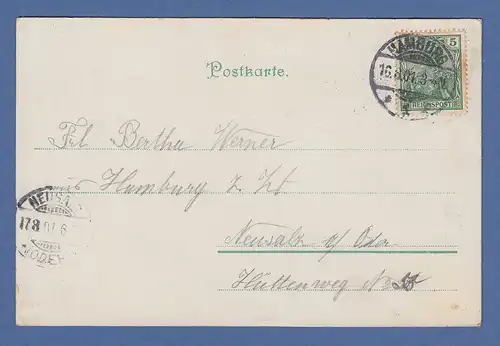 Postkarte.
5
HAMBURG
16.8.01.3-4N
REICHSPOST
Frl Bertha Werner
Hamburg z. Zt
NEUSALZ
17.8.01.6
(ODER)
Neusalz a/ Oder
Hüttenweg No